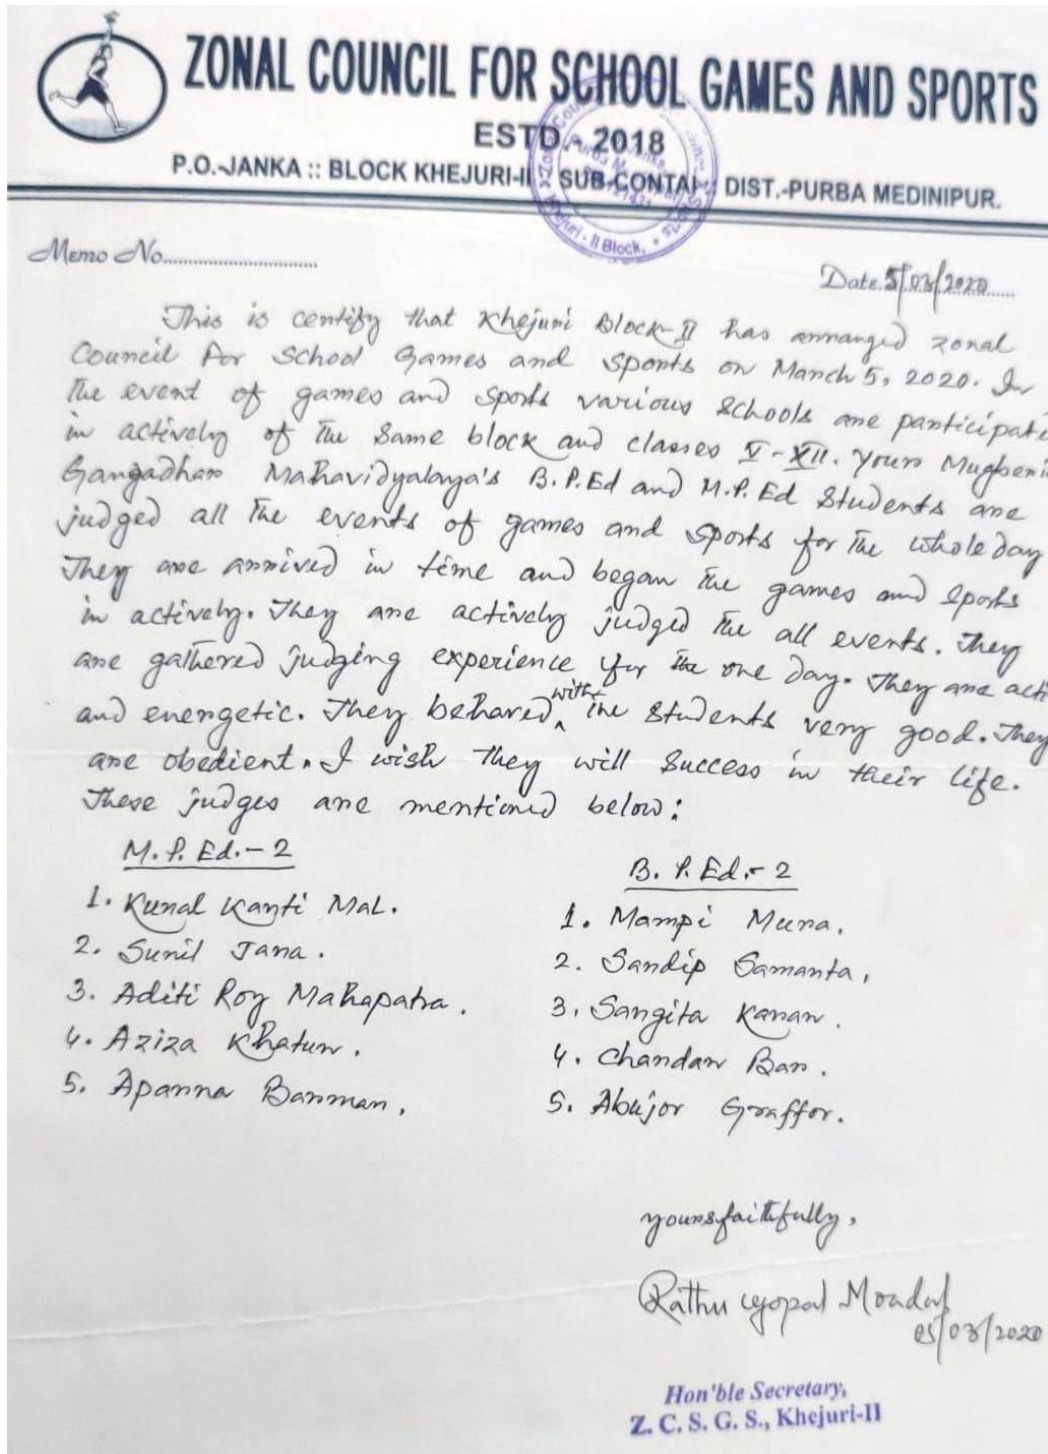 ZONAL COUNCIL FOR SCHOOL GAMES AND SPORTS
ESTD.- 2018
P.O.-JANKA :: BLOCK KHEJURI-II SUB-CONTAI :: DIST.-PURBA MEDINIPUR.
Memo No.
Date. 5/03/2020
This is centify that Khejuri Block-II has arranged Zonal
Council for School Games and Sports on March 5, 2020. In
the event of games and sports various schools are participate
in actively of the same block and classes V-XII. Yours Mugberia
Gangadhar Mahavidyalaya's B.P.Ed and M.P.Ed Students are
judged all the events of games and sports for the whole day
They are arrived in time and began the games and sports
in actively. They are actively judged the all events. They
are gathered judging experience for the one day. They are acti
and energetic. They behaved with the students very good. They
are obedient. I wish they will success in their life.
These judges are mentioned below:
M.P.Ed.-2
1. Kunal Kanti Mal.
2. Sunil Jana.
3. Aditi Roy Mahapatra.
4. Aziza Khatun.
5. Aparna Barman.
B.P.Ed.-2
1. Mampi Mura.
2. Sandip Samanta,
3. Sangita Karan.
4. Chandan Bar.
5. Abujor Graffor.
yours faithfully,
Gopal Mondal
05/03/2020
Hon'ble Secretary,
Z. C. S. G. S., Khejuri-II
Khejuri - II Block,